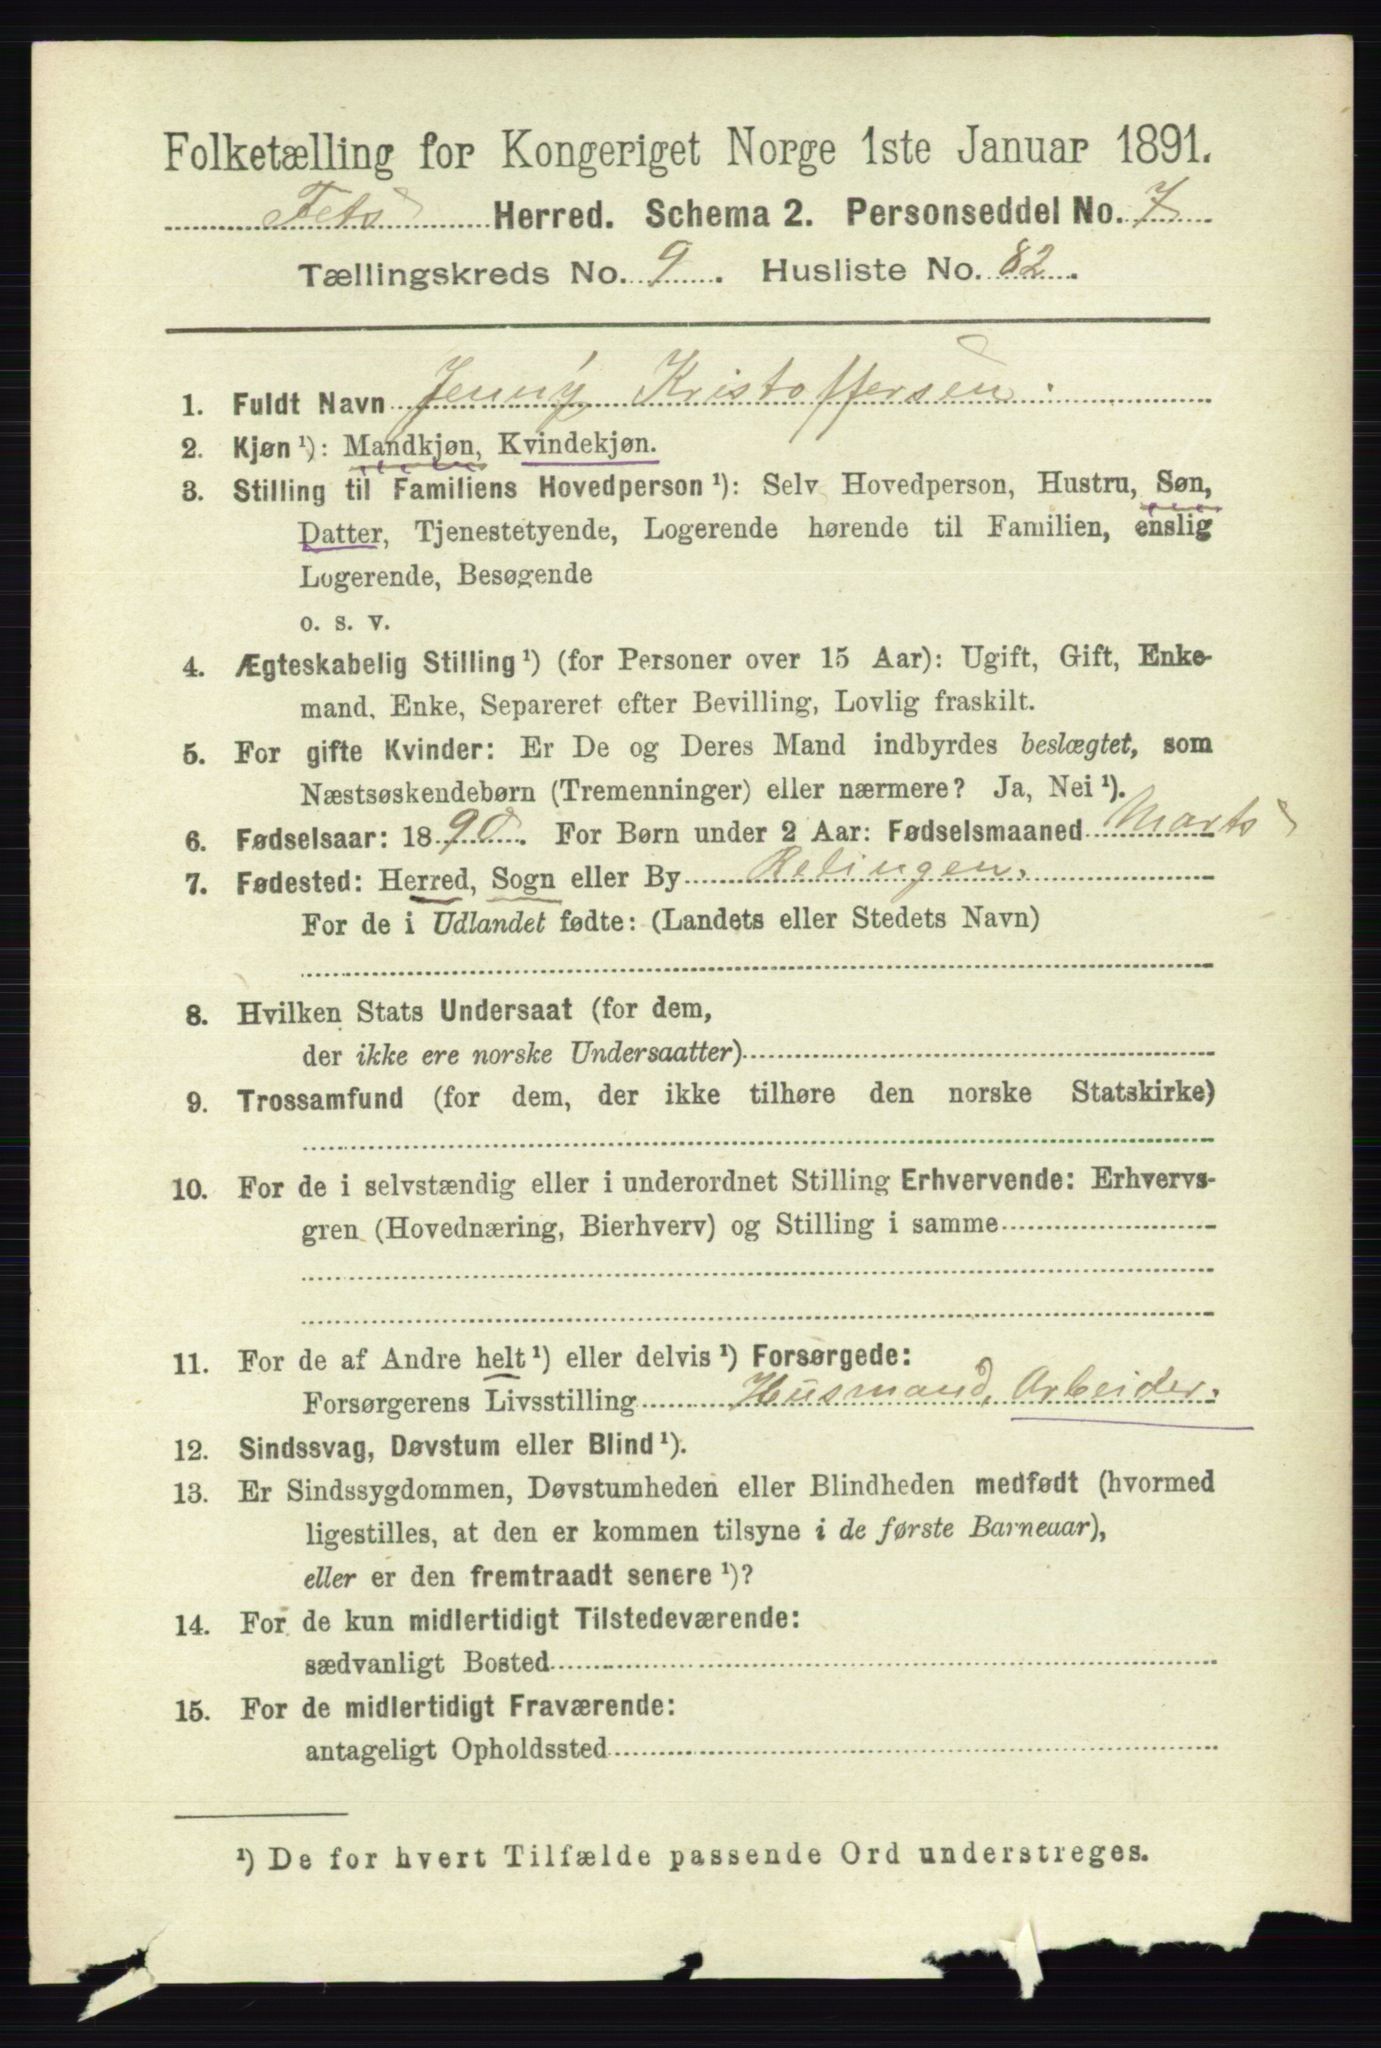 Folketælling for Kongeriget Norge 1ste Januar 1891.
Fets Herred. Schema 2. Personseddel No. 7
Tællingskreds No. 9. Husliste No. 82.
1. Fuldt Navn Jenny Kristoffersen.
2. Kjøn ¹): Mandkjøn, Kvindekjøn.
3. Stilling til Familiens Hovedperson ¹): Selv Hovedperson, Hustru, Søn,
Datter, Tjenestetyende, Logerende hørende til Familien, enslig
Logerende, Besøgende
o. s. v.
4. Ægteskabelig Stilling ¹) (for Personer over 15 Aar): Ugift, Gift, Enke-
mand, Enke, Separeret efter Bevilling, Lovlig fraskilt.
5. For gifte Kvinder: Er De og Deres Mand indbyrdes beslægtet, som
Næstsøskendebørn (Tremenninger) eller nærmere? Ja, Nei ¹).
6. Fødselsaar: 1890. For Børn under 2 Aar: Fødselsmaaned Marts
7. Fødested: Herred, Sogn eller By Relingen.
For de i Udlandet fødte: (Landets eller Stedets Navn)
8. Hvilken Stats Undersaat (for dem,
der ikke ere norske Undersaatter)
9. Trossamfund (for dem, der ikke tilhøre den norske Statskirke)
10. For de i selvstændig eller i underordnet Stilling Erhvervende: Erhvervs-
gren (Hovednæring, Bierhverv) og Stilling i samme
11. For de af Andre helt ¹) eller delvis ¹) Forsørgede:
Forsørgerens Livsstilling Husmand, Arbeider.
12. Sindssvag, Døvstum eller Blind ¹).
13. Er Sindssygdommen, Døvstumheden eller Blindheden medfødt (hvormed
ligestilles, at den er kommen tilsyne i de første Barneaar),
eller er den fremtraadt senere ¹)?
14. For de kun midlertidigt Tilstedeværende:
sædvanligt Bosted
15. For de midlertidigt Fraværende:
antageligt Opholdssted
¹) De for hvert Tilfælde passende Ord understreges.